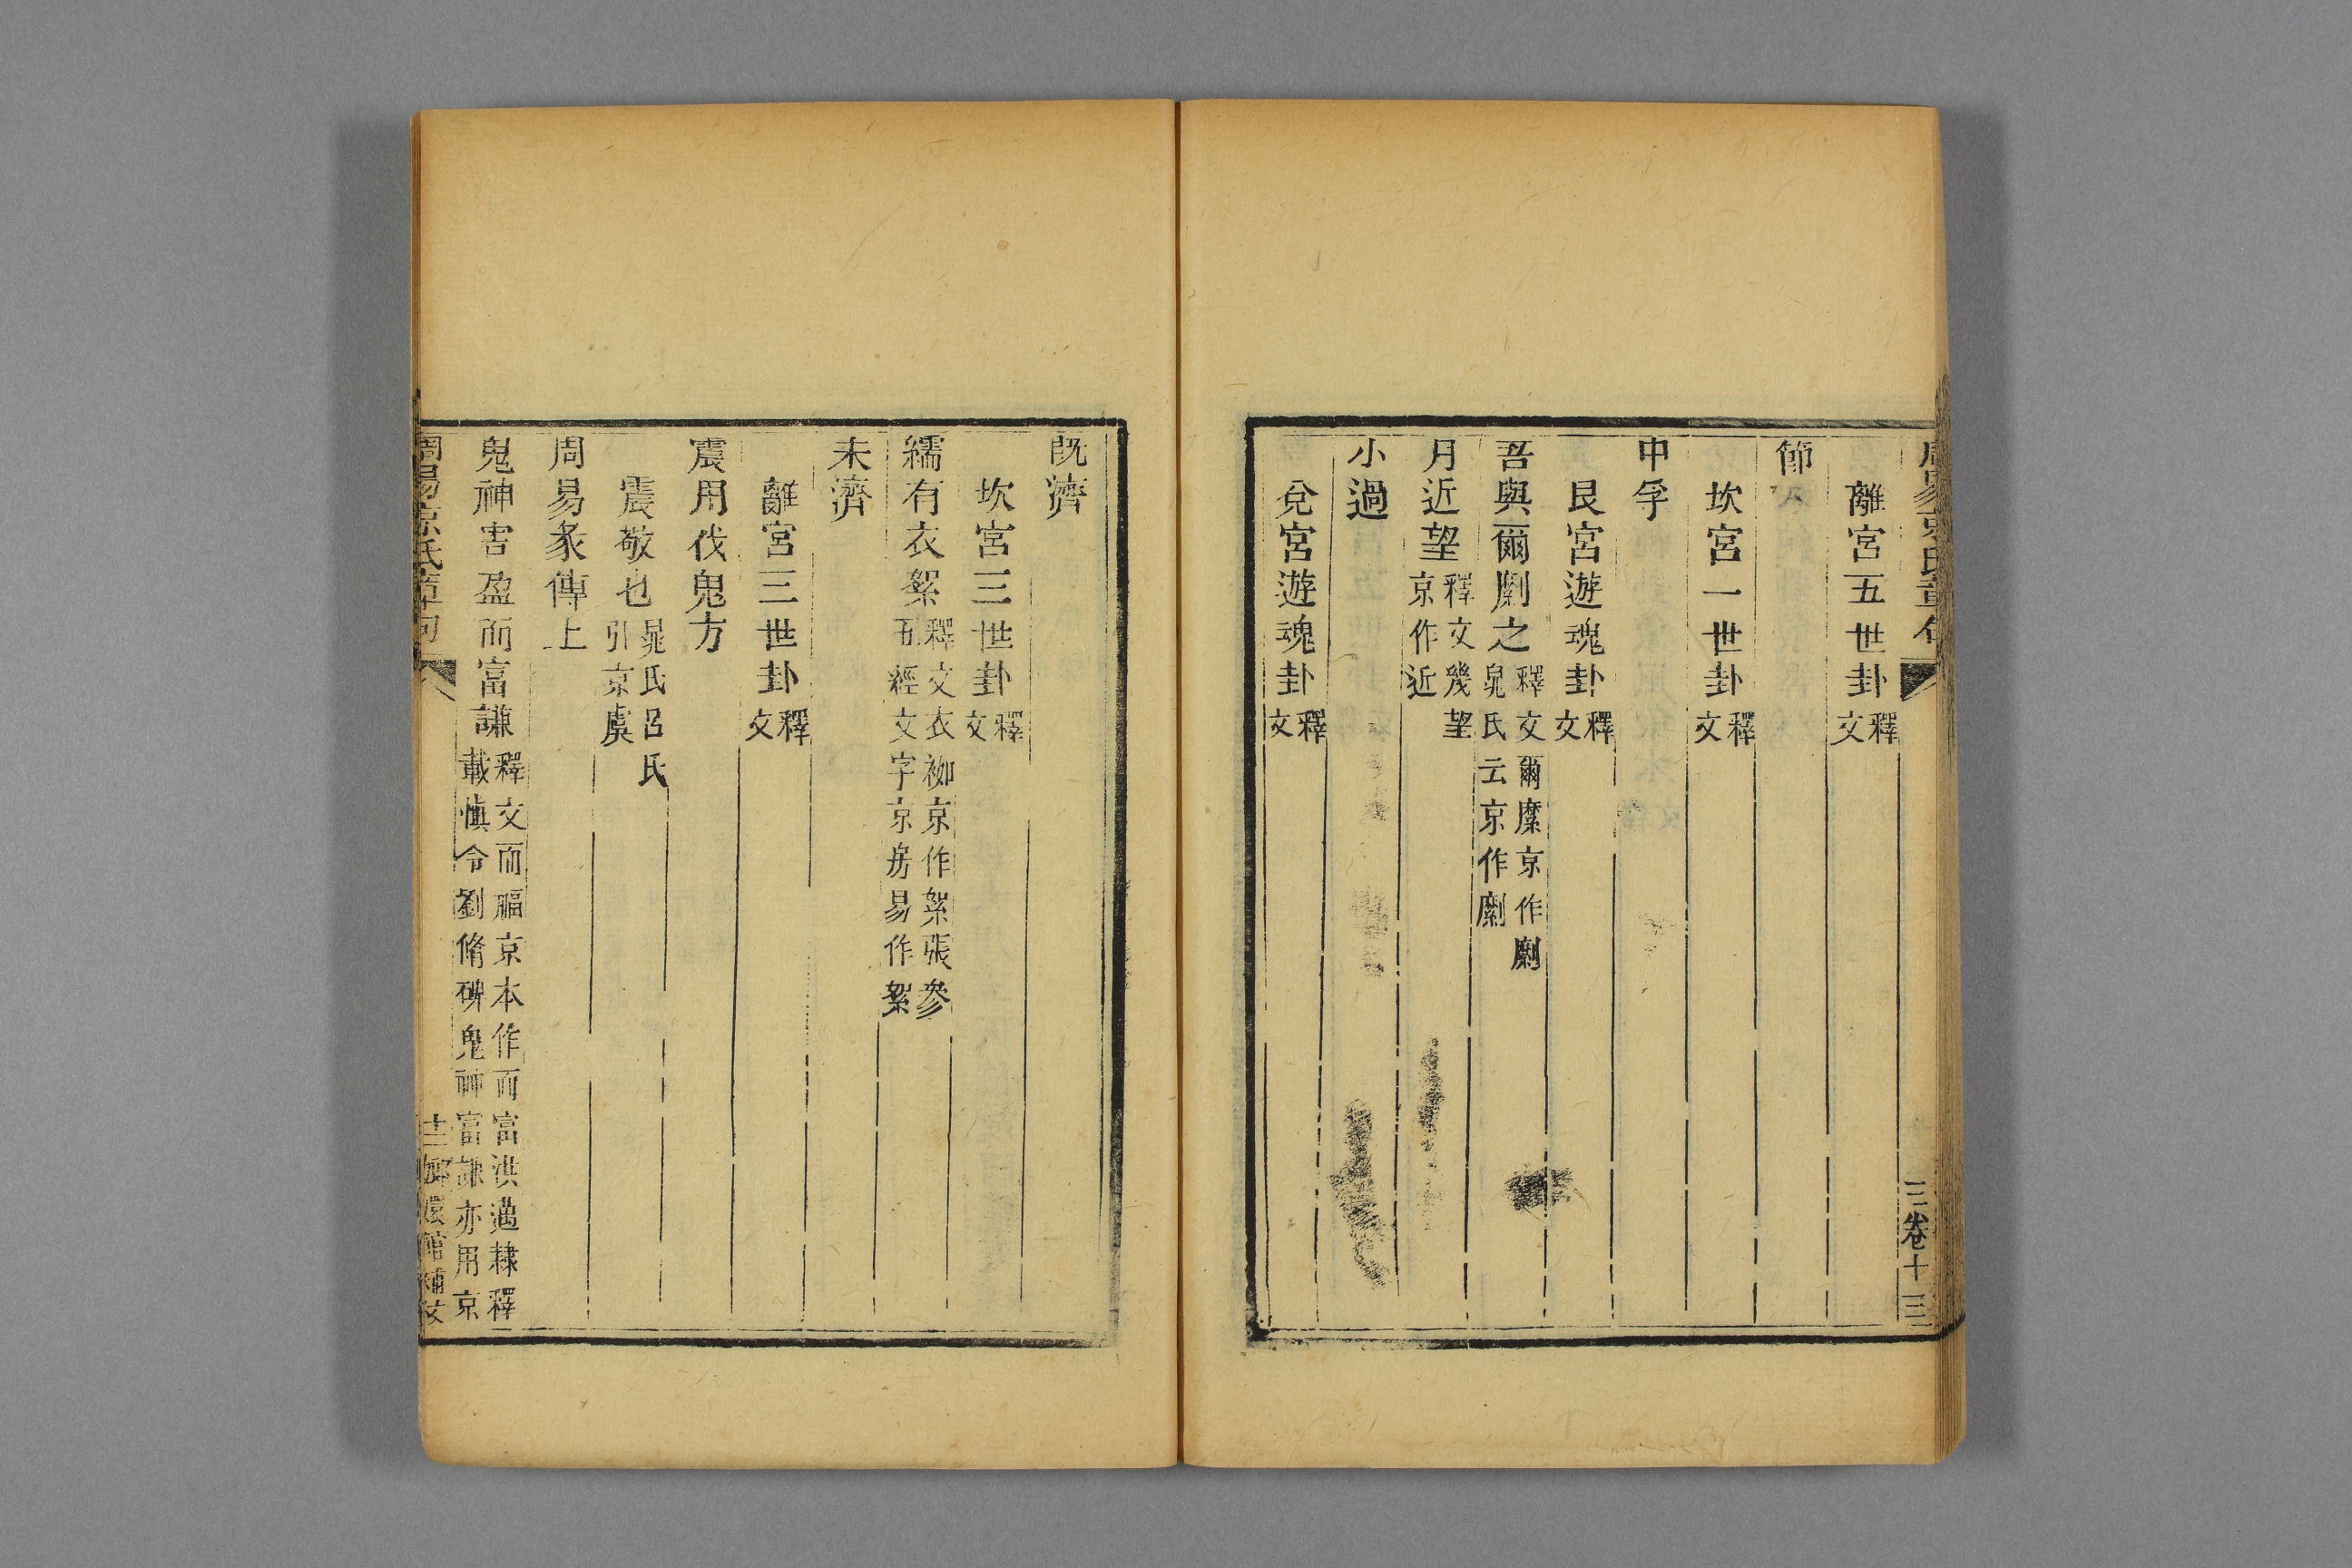 周易京氏章句
三卷十三
離宮五世卦釋文
節
坎宮一世卦釋文
中孚
艮宮遊魂卦釋文
吾與爾劘之釋文爾縻京作劘
晁氏云京作劘
月近望釋文幾望
京作近
小過
兌宮遊魂卦釋文
既濟
坎宮三世卦釋文
繻有衣絮釋文衣袽京作絮張參
五經文字京房易作絮
未濟
離宮三世卦釋文
震用伐鬼方
震敬也晁氏呂氏
引京虞
周易彖傳上
鬼神害盈而富謙釋文而福京本作而富洪适隸釋
載慎令劉脩碑鬼神富謙亦用京
周易京氏章句
十三
嫏嬛館補校